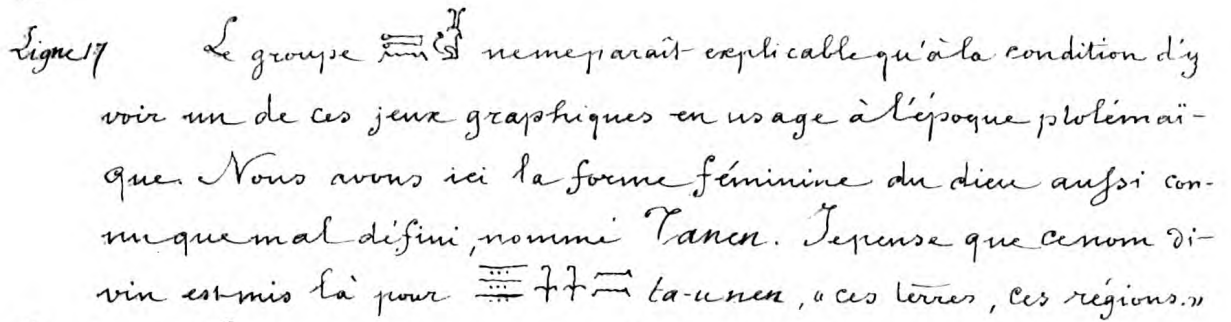 Ligne 17 Le groupe ne me paraît explicable qu'à la condition d'y
voir un de ces jeux graphiques en usage à l'époque ptolémaï-
que. Nous avons ici la forme féminine du dieu aussi con-
nu que mal défini, nommé Tanen. Je pense que ce nom di-
vin est mis là pour ta-unen, « ces terres, ces régions. »